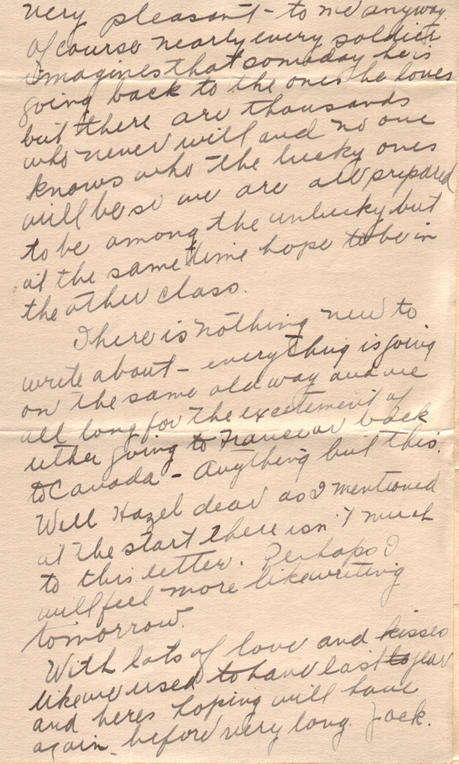 very pleasant - to me anyway.
Of course nearly every soldier
imagines that someday he is
going back to the ones he loves
but there are thousands
who never will and no one
knows who the lucky ones
will be so we are all prepared
to be among the unlucky but
at the same time hope to be in
the other class.
There is nothing new to
write about - everything is going
on the same old way and we
all long for the excitement of
either going to France or back
to Canada - Anything but this.
Well Hazel dear as I mentioned
at the start there isn't much
to this letter. Perhaps I
will feel more like writing
tomorrow.
With lots of love and kisses
like we used to have last year
and heres hoping will have
again before very long. Jack.